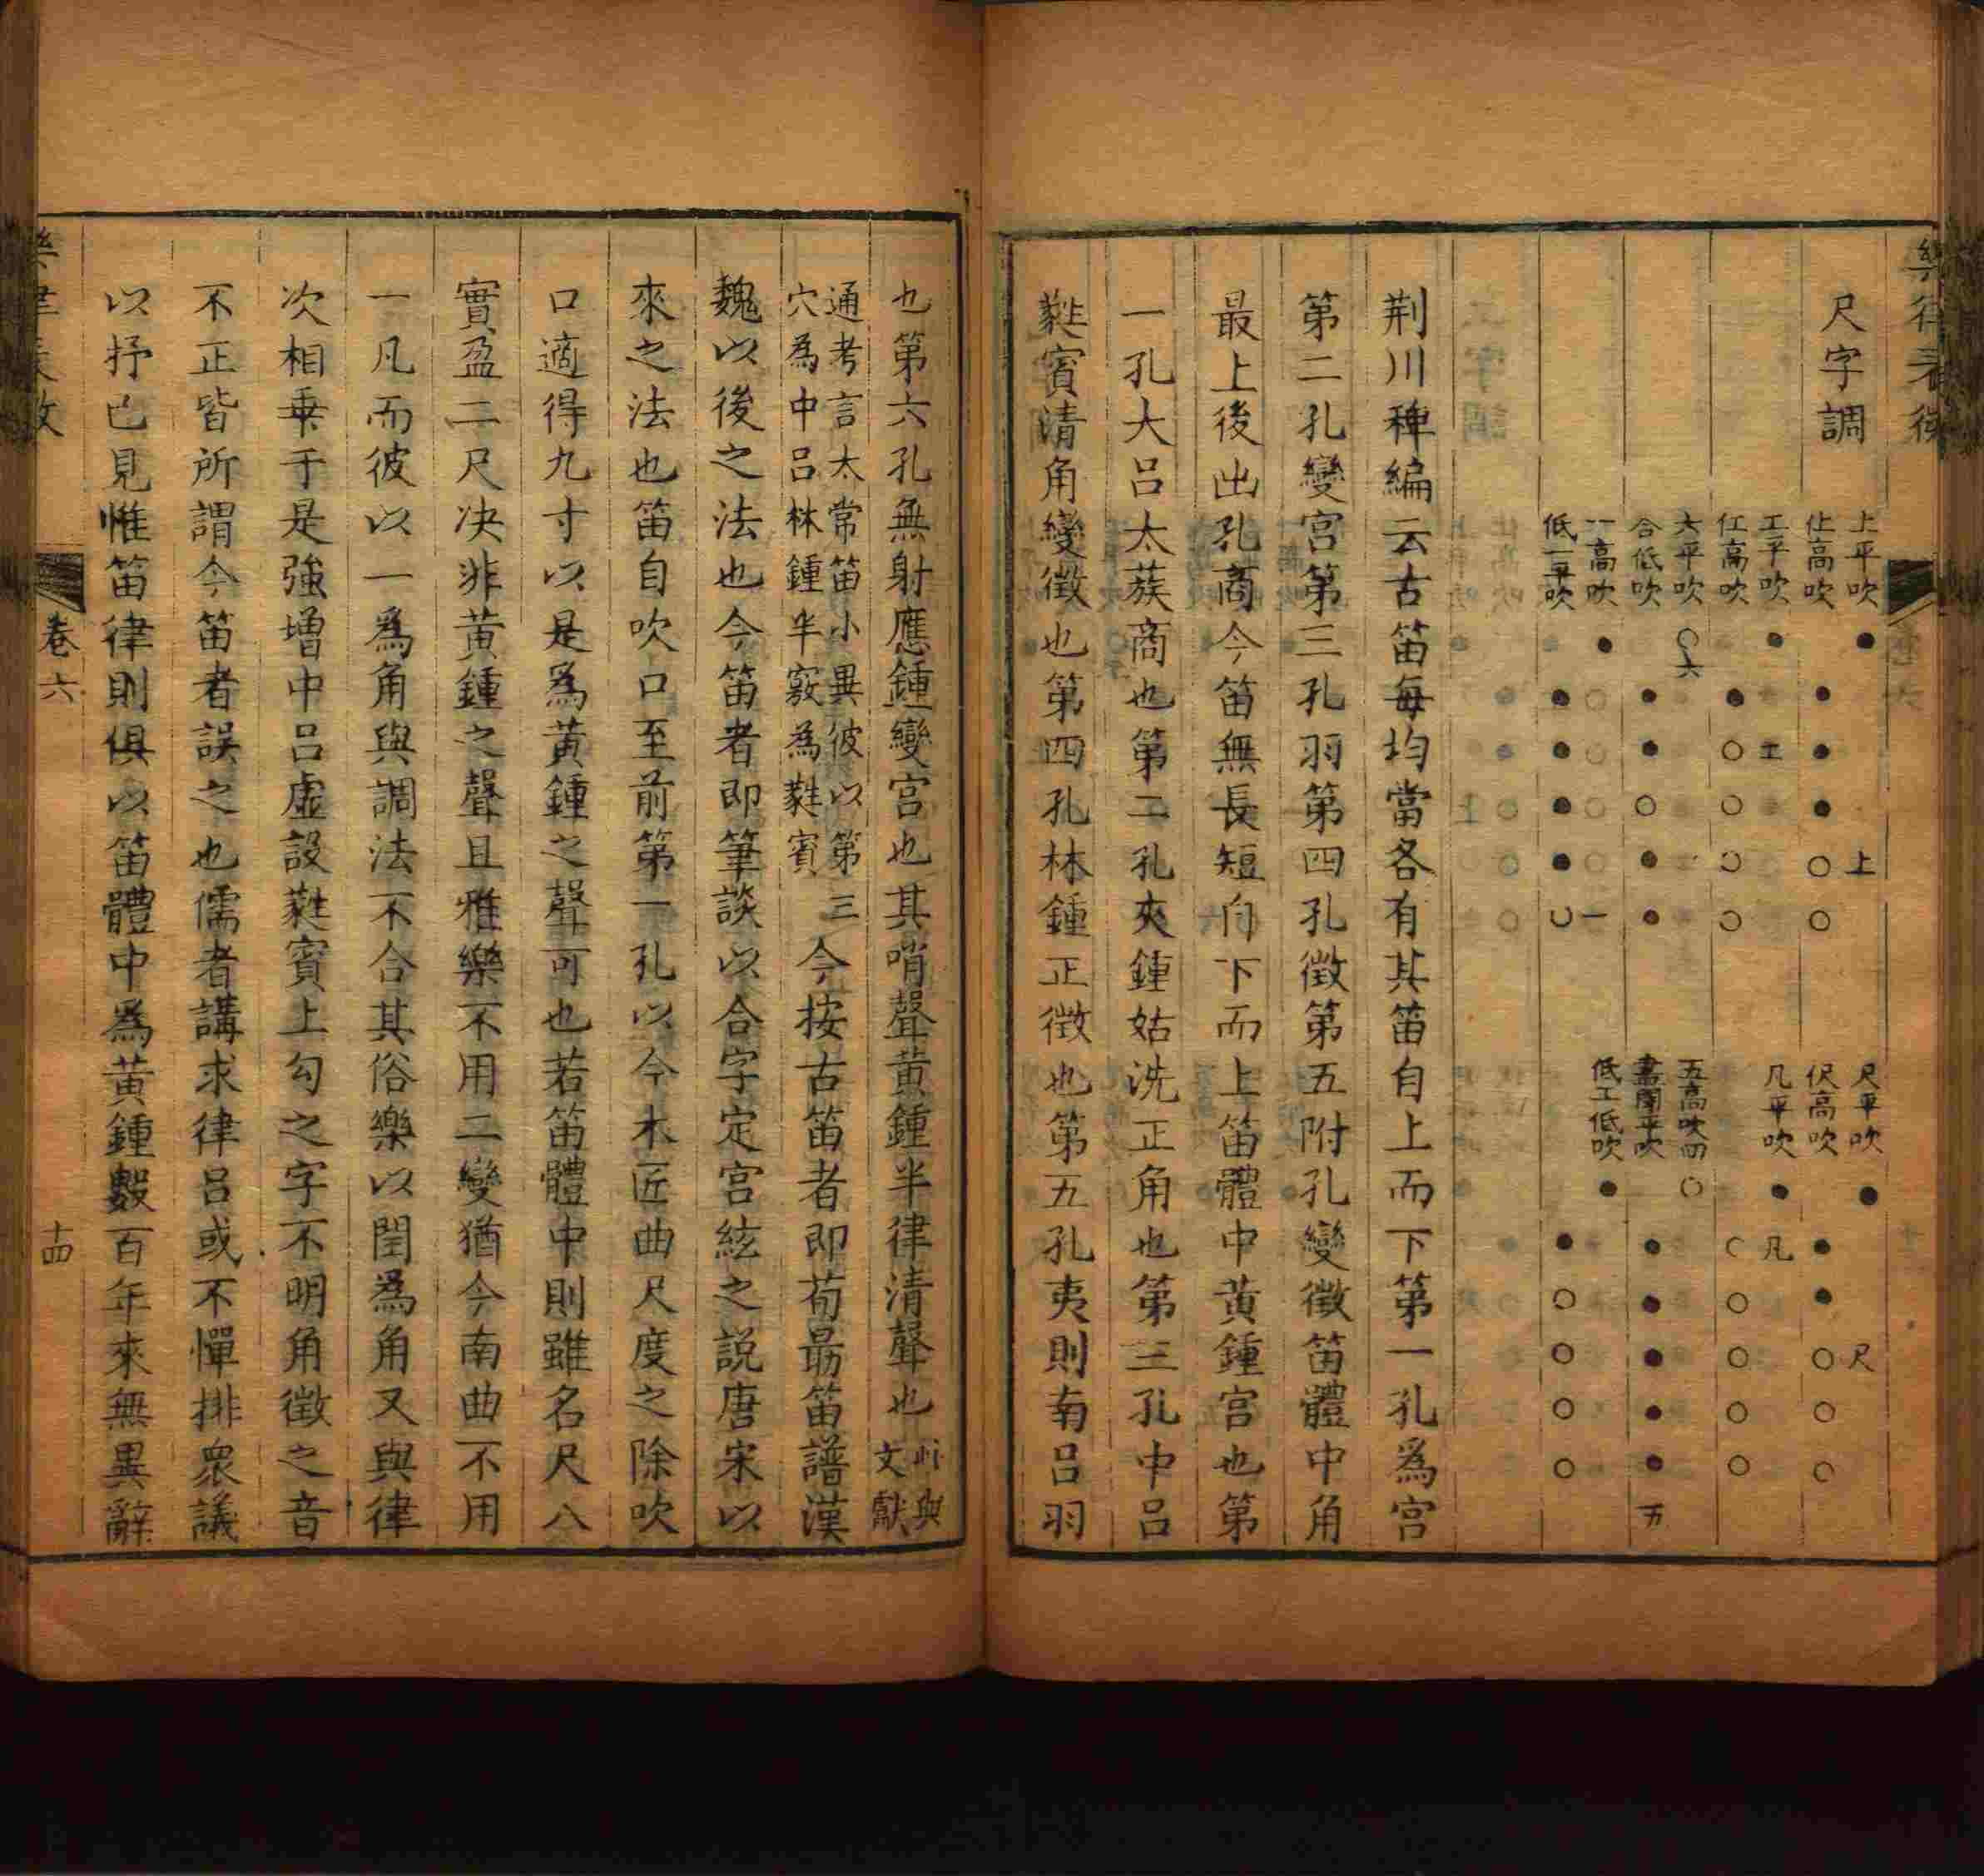 尺字調
上平吹
仩高吹
上
工平吹
仜高吹
工
六平吹
合低吹
六
一高吹
低一平吹
一
尺平吹
伬高吹
尺
凡平吹
凡
五高吹四
五
低工低吹
荆川稗編云古笛每均當各有其笛自上而下第一孔爲宫
第二孔變宫第三孔羽第四孔徵第五附孔變徵笛體中角
最上後出孔商今笛無長短自下而上笛體中黄鍾宫也第
一孔大吕太蔟商也第二孔夾鍾姑洗正角也第三孔中吕
蕤賓清角變徵也第四孔林鍾正徵也第五孔夷則南吕羽
也第六孔無射應鍾變宫也其哨聲黄鍾半律清聲也此與文獻
通考言太常笛小異彼以第三穴為中吕林鍾半竅為蕤賓今按古笛者即荀勗笛譜漢
魏以後之法也今笛者即筆談以合字定宫絃之説唐宋以
來之法也笛自吹口至前第一孔以今木匠曲尺度之除吹
口適得九寸以是爲黄鍾之聲可也若笛體中則雖名尺八
實盈二尺决非黄鍾之聲且雅樂不用二變猶今南曲不用
一凡而彼以一爲角與調法不合其俗樂以閏爲角又與律
次相乗于是強增中吕虚設蕤賓上勾之字不明角徵之音
不正皆所謂今笛者誤之也儒者講求律吕或不憚排衆議
以抒已見惟笛律則俱以笛體中爲黄鍾數百年來無異辭
卷六
十四